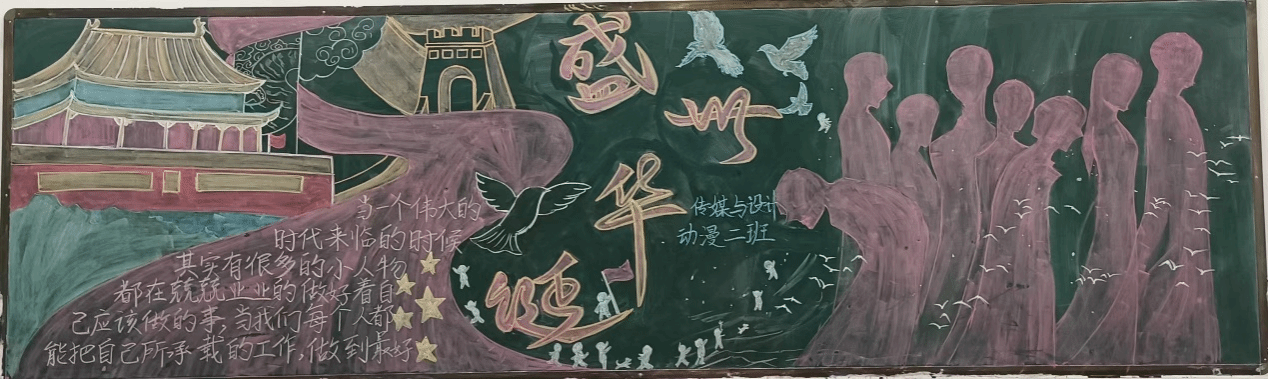 盛世华诞
传媒与设计
动漫二班
当一个伟大的
时代来临的时候
其实有很多的小人物
都在兢兢业业的做好着自
己应该做的事,当我们每个人都
能把自己所承载的工作,做到最好